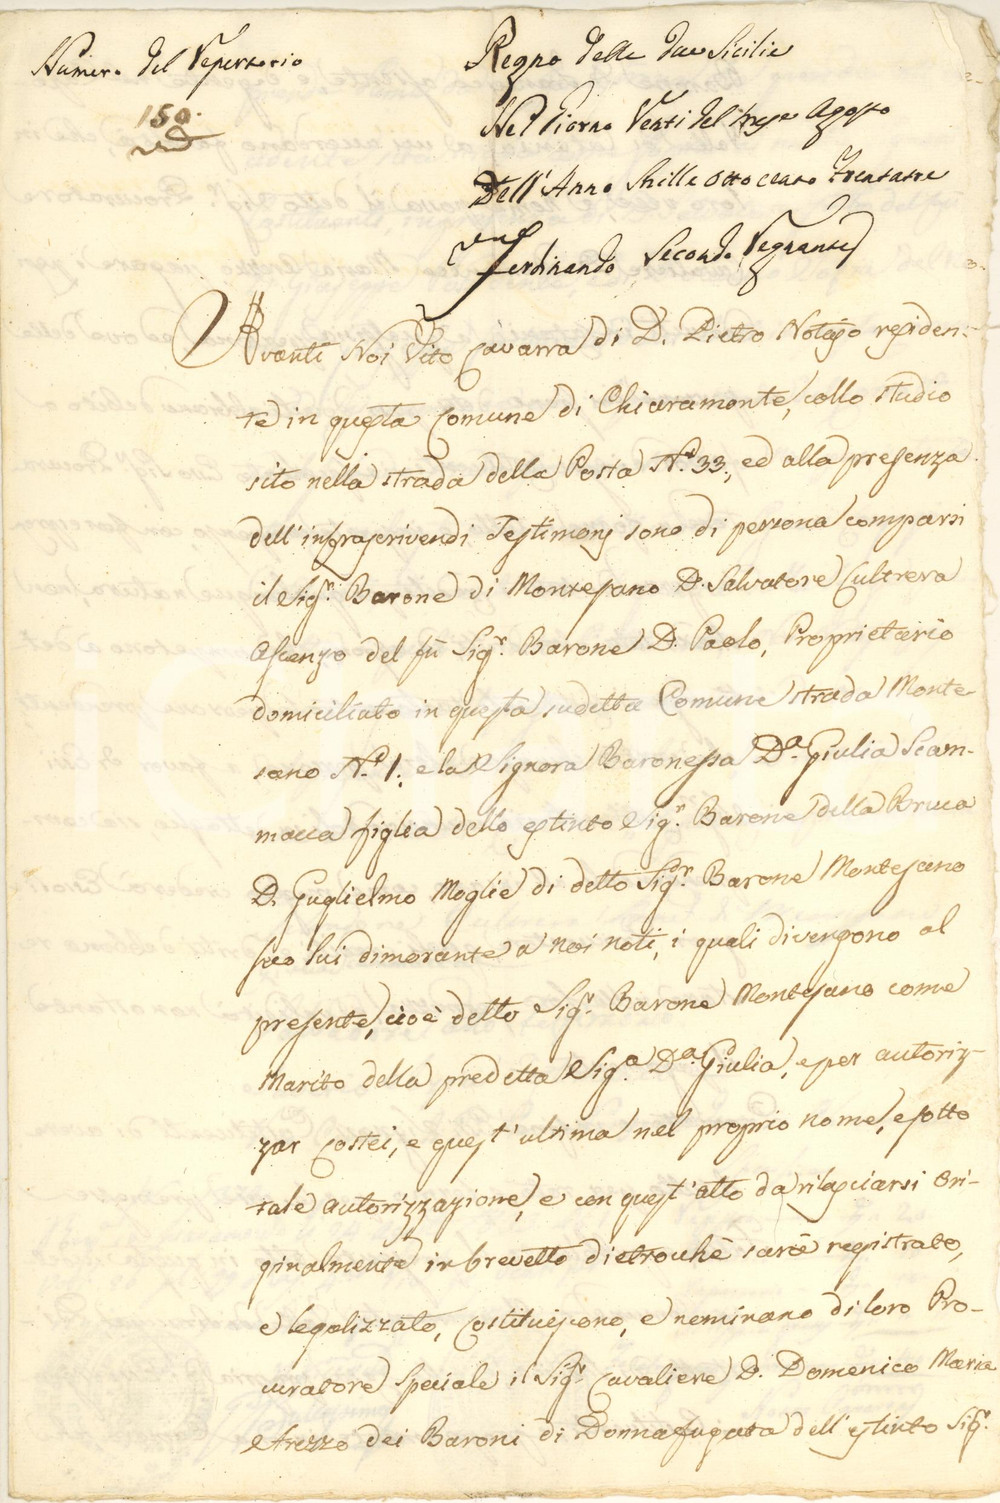 Numero del Repertorio
150.
Regno delle due Sicilie
Nel Giorno Venti del mese Agosto
Dell'Anno Mille Ottocento Trentatre
Ferdinando Secondo Regnante
Avanti Noi Vito Cavarra di D. Pietro Notajo residen-
te in questa Comune di Chiaramonte, collo studio
sito nella strada della Posta N.° 33., ed alla presenza
dell'infrascrivendi Testimonj sono di persona comparsi
il Sig.r Barone di Montesano D. Salvatore Cultrera
Ascenzo del fù Sig.r Barone D. Paolo, Proprietario
domiciliato in questa sudetta Comune strada Monte-
sano N.° 1., e la Signora Baronessa D.a Giulia Scam-
macca figlia dello estinto Sig.r Barone della Bruca
D. Guglielmo Moglie di detto Sig.r Barone Montesano
seco lui dimorante a noi noti, i quali divengono al
presente, cioè detto Sig.r Barone Montesano come
Marito della predetta Sig.a D.a Giulia, e per autoriz-
zar costei, e quest'ultima nel proprio nome, e sotto
tale autorizzazione, e con quest'atto da rilasciarsi ori-
ginalmente in brevetto dietrochè sarà registrato,
e legalizzato, costituiscono, e nominano di loro Pro-
curatore speciale il Sig.r Cavaliere D. Domenico Maria
Arezzo dei Baroni di Donnafugata dell'estinto Sig.r